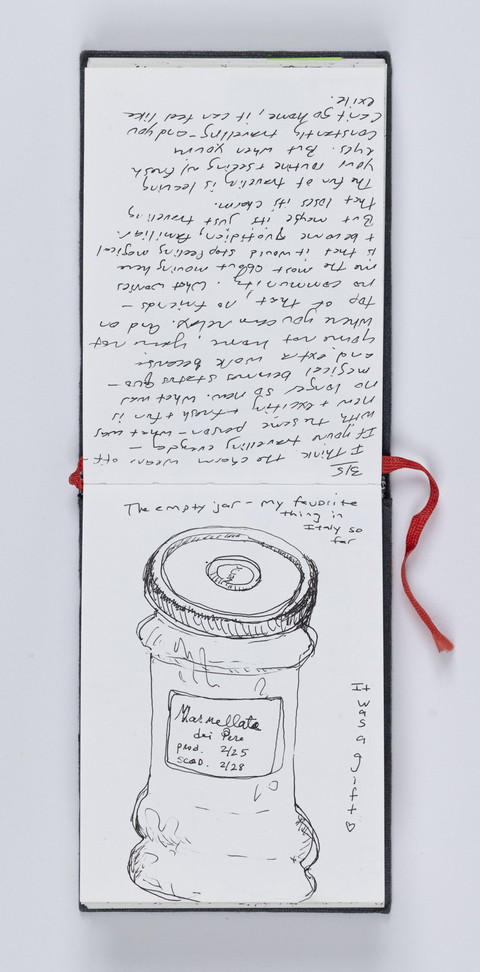 3/5
I think the charm wears off
If you're travelling everyday —
with the same person - what was
new + exciting + fresh + fun is
no longer so new. What was
magical becomes status quo —
and extra work because
you're not home, you're not
where you can relax. And on
top of that, no friends —
no community. What worries
me the most about moving here
is that it would stop feeling magical
+ become quotidien, familiar.
But maybe its just traveling
that loses its charm.
The fun of traveling is leaving
your routine + seeing w/ fresh
eyes. But when youre
constantly travelling - and you
can't go home, it can feel like
exile.
The empty jar - my favorite
thing in
Italy so
far
Marmellata
dei Pere
prod. 2/25
scad. 2/28
It was a gift ♡